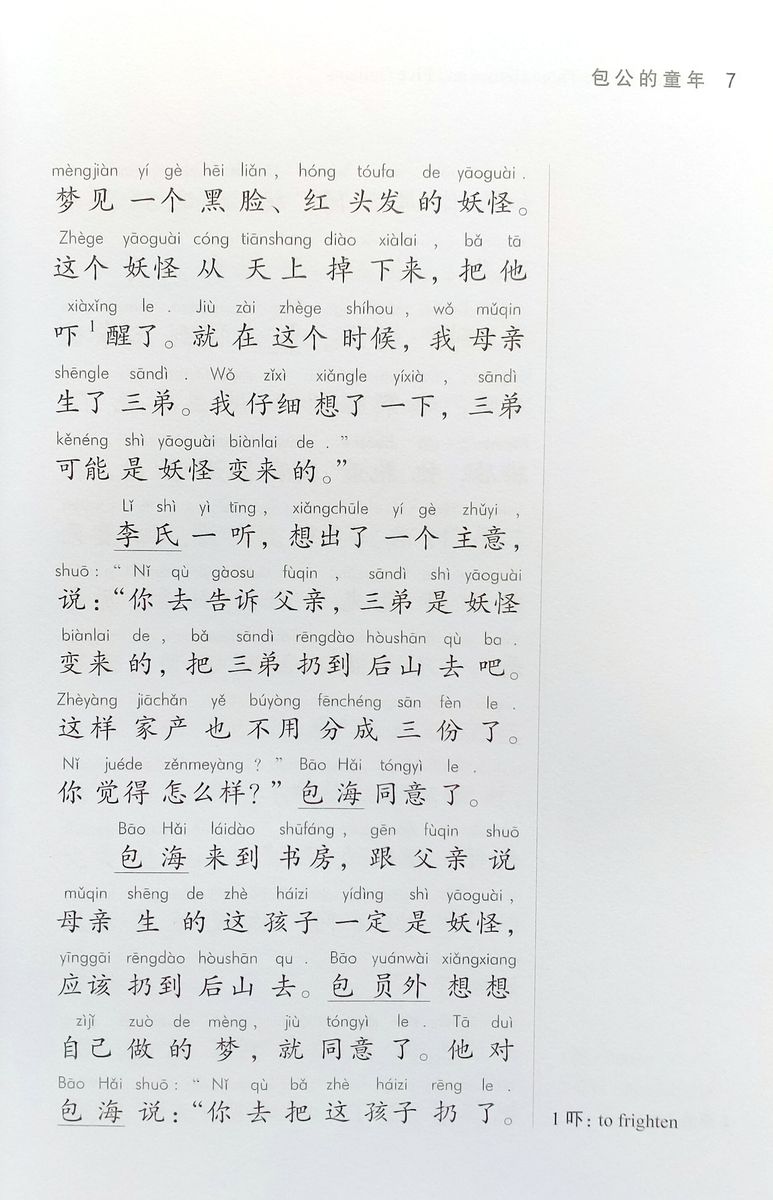 包公的童年 7
mèngjiàn yí gè hēi liǎn, hóng tóufa de yāoguài.
梦见一个黑脸、红头发的妖怪。
Zhège yāoguài cóng tiānshang diào xiàlai, bǎ tā
这个妖怪从天上掉下来，把他
xiàxǐng le. Jiù zài zhège shíhou, wǒ mǔqin
吓1醒了。就在这个时候，我母亲
shēngle sāndì. Wǒ zǐxì xiǎngle yíxià, sāndì
生了三弟。我仔细想了一下，三弟
kěnéng shì yāoguài biànlai de."
可能是妖怪变来的。”
Lǐ shì yì tīng, xiǎngchūle yí gè zhǔyi,
李氏一听，想出了一个主意，
shuō: "Nǐ qù gàosu fùqin, sāndì shì yāoguài
说：“你去告诉父亲，三弟是妖怪
biànlai de, bǎ sāndì rēngdào hòushān qù ba.
变来的，把三弟扔到后山去吧。
Zhèyàng jiāchǎn yě búyòng fēnchéng sān fèn le.
这样家产也不用分成三份了。
Nǐ juéde zěnmeyàng?" Bāo Hǎi tóngyì le.
你觉得怎么样？”包海同意了。
Bāo Hǎi láidào shūfáng, gēn fùqin shuō
包海来到书房，跟父亲说
mǔqin shēng de zhè háizi yídìng shì yāoguài,
母亲生的这孩子一定是妖怪，
yīnggāi rēngdào hòushān qu. Bāo yuánwài xiǎngxiang
应该扔到后山去。包员外想想
zìjǐ zuò de mèng, jiù tóngyì le. Tā duì
自己做的梦，就同意了。他对
Bāo Hǎi shuō: "Nǐ qù bǎ zhè háizi rēng le.
包海说：“你去把这孩子扔了。
1 吓: to frighten